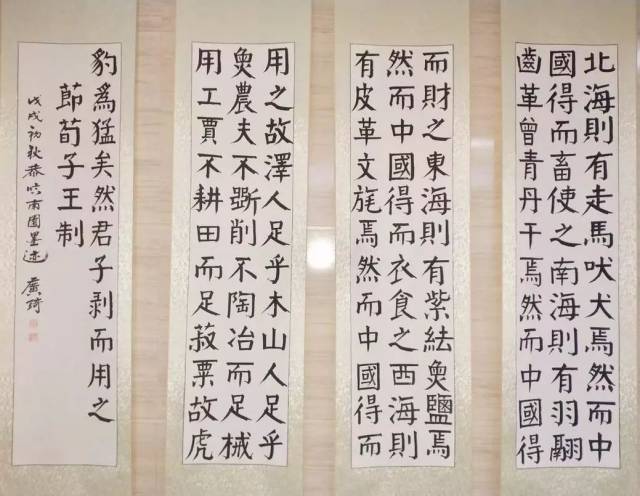 北海則有走馬吠犬焉然而中
國得而畜使之南海則有羽翮
齒革曾青丹干焉然而中國得
而財之東海則有紫紶魚鹽焉
然而中國得而衣食之西海則
有皮革文旄焉然而中國得而
用之故澤人足乎木山人足乎
魚農夫不斲削不陶冶而足械
用工賈不耕田而足菽粟故虎
豹爲猛矣然君子剥而用之
節荀子王制
戊戌初秋恭南園墨迹